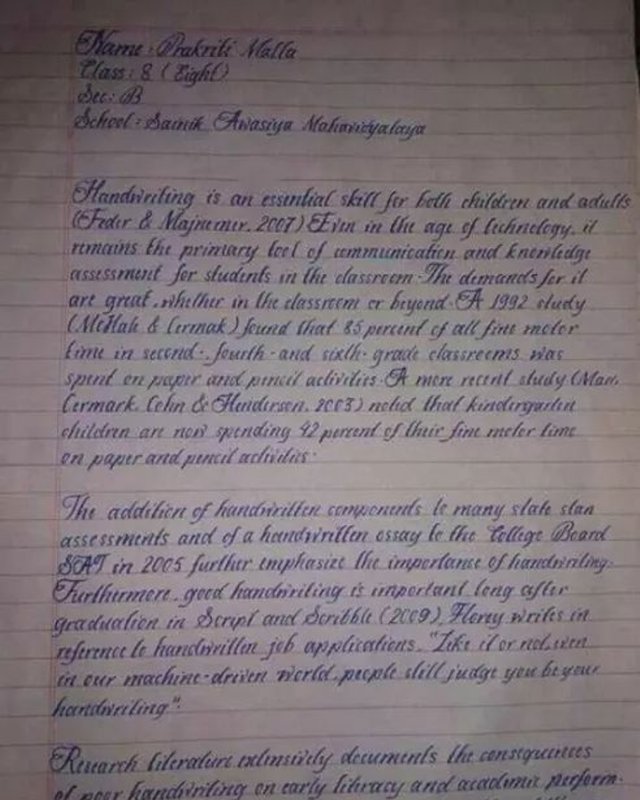 Name : Prakriti Malla
Class : 8 (Eight)
Sec : B
School : Sainik Awasiya Mahavidyalaya
Handwriting is an essential skill for both children and adults
(Feder & Majnemer, 2007) Even in the age of technology, it
remains the primary tool of communication and knowledge
assessment for students in the classroom. The demands for it
are great, whether in the classroom or beyond. A 1992 study
(McHale & Cermak) found that 85 percent of all fine motor
time in second-, fourth- and sixth-grade classrooms was
spent on paper and pencil activities. A more recent study (Marr,
Cermark, Cohn & Henderson, 2003) noted that kindergarten
children are now spending 42 percent of their fine motor time
on paper and pencil activities.
The addition of handwritten components to many state stan
assessments and of a handwritten essay to the College Board
SAT in 2005 further emphasize the importance of handwriting.
Furthermore, good handwriting is important long after
graduation in Script and Scribble (2009), Florey writes in
reference to handwritten job applications, "Like it or not, even
in our machine-driven world, people still judge you be your
handwriting".
Research literature extensively documents the consequences
of poor handwriting on early literacy and academic perform-